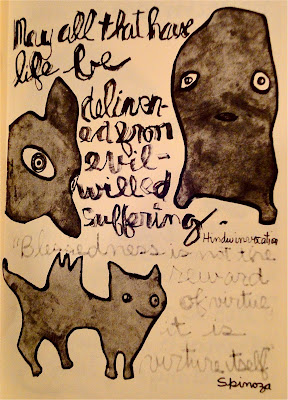 May all that have
life be
deliver-
ed from
evil-
willed
suffering ~
Hindu invocation
"Blessedness is not the
reward
of virtue,
it is
virture itself"
Spinoza